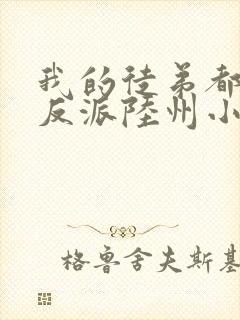 我的徒弟都
反派陸州小
格鲁舍夫斯基